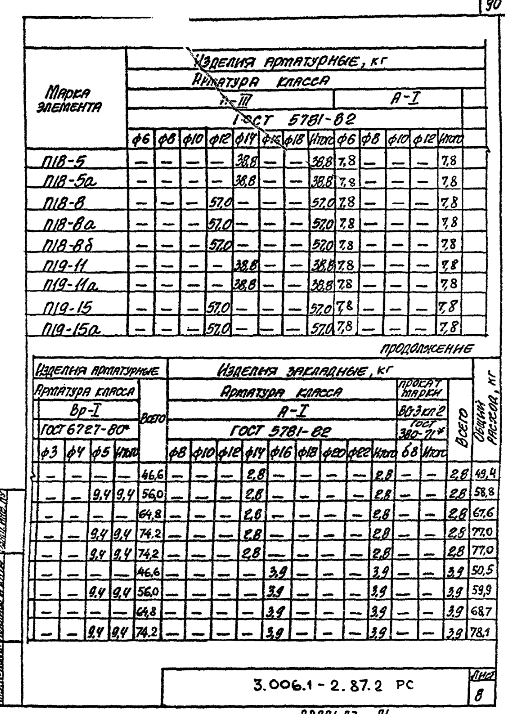 90
Изделия арматурные, кг
Марка элемента
Арматура класса
А-III А-I
ГОСТ 5781-82
ф6 ф8 ф10 ф12 ф14 ф16 ф18 Итого ф6 ф8 ф10 ф12 Итого
П18-5 — — — — 38,8 — — 38,8 7,8 — — — 7,8
П18-5а — — — — 38,8 — — 38,8 7,8 — — — 7,8
П18-8 — — — 57,0 — — — 57,0 7,8 — — — 7,8
П18-8а — — — 57,0 — — — 57,0 7,8 — — — 7,8
П18-8б — — — 57,0 — — — 57,0 7,8 — — — 7,8
П19-11 — — — — 38,8 — — 38,8 7,8 — — — 7,8
П19-11а — — — — 38,8 — — 38,8 7,8 — — — 7,8
П19-15 — — — 57,0 — — — 57,0 7,8 — — — 7,8
П19-15а — — — 57,0 — — — 57,0 7,8 — — — 7,8
продолжение
Изделия арматурные Изделия закладные, кг
Общий расход, кг
Арматура класса Всего Арматура класса Прокат марки Всего
Вр-I А-I ВСт3кп2
ГОСТ 6727-80* ГОСТ 5781-82 ГОСТ 380-71*
ф3 ф4 ф5 Итого ф8 ф10 ф12 ф14 ф16 ф18 ф20 ф22 Итого δ8 Итого
— — — — 46,6 — — — 2,8 — — — — 2,8 — — 2,8 49,4
— — 9,4 9,4 56,0 — — — 2,8 — — — — 2,8 — — 2,8 58,8
— — — — 64,8 — — — 2,8 — — — — 2,8 — — 2,8 67,6
— — 9,4 9,4 74,2 — — — 2,8 — — — — 2,8 — — 2,8 77,0
— — 9,4 9,4 74,2 — — — 2,8 — — — — 2,8 — — 2,8 77,0
— — — — 46,6 — — — — 3,9 — — — 3,9 — — 3,9 50,5
— — 9,4 9,4 56,0 — — — — 3,9 — — — 3,9 — — 3,9 59,9
— — — — 64,8 — — — — 3,9 — — — 3,9 — — 3,9 68,7
— — 9,4 9,4 74,2 — — — — 3,9 — — — 3,9 — — 3,9 78,1
3.006.1-2.87.2 РС
Лист
8